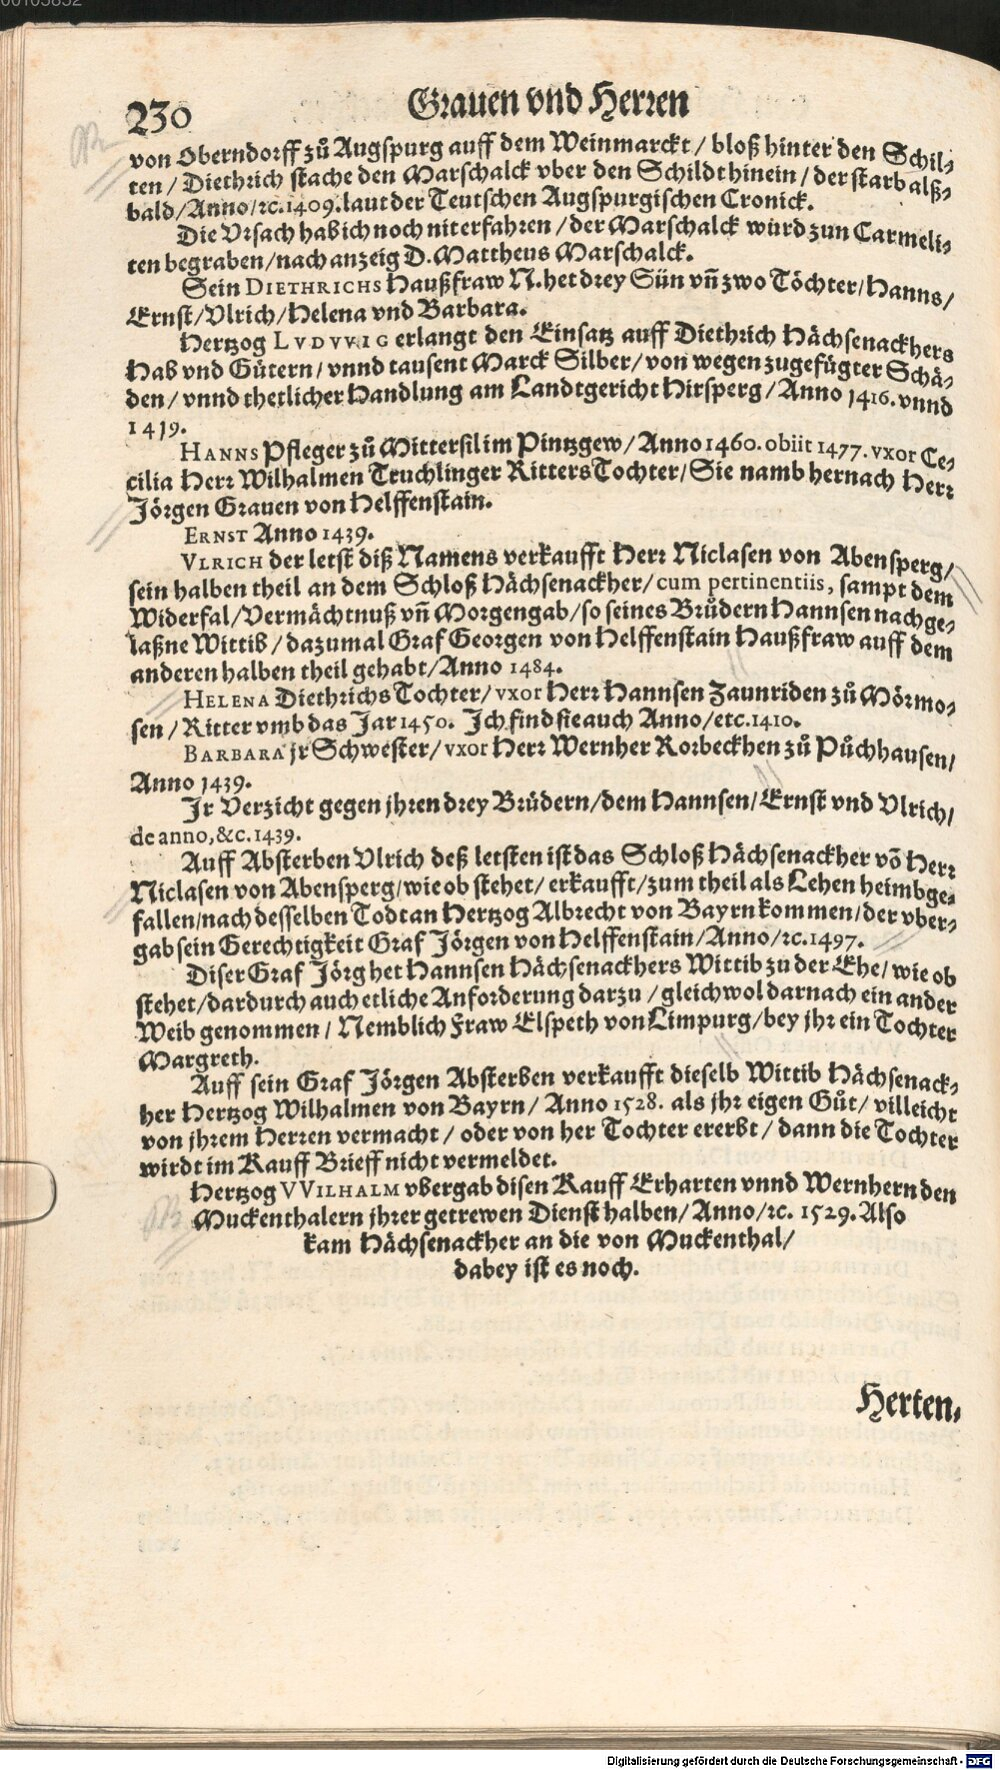 00103852
Grauen vnd Herren
230
von Oberndorff zů Augspurg auff dem Weinmarckt / bloß hinter den Schil-
ten / Diethrich stache den Marschalck vber den Schildt hinein / der starb alß-
bald / Anno / rc. 1409. laut der Teutschen Augspurgischen Cronick.
Die Vrsach hab ich noch nit erfahren / der Marschalck würd zun Carmeli-
ten begraben / nach anzeig D. Mattheus Marschalck.
Sein DIETHRICHS Haußfraw N. het drey Sün vñ zwo Töchter / Hanns /
Ernst / Vlrich / Helena vnd Barbara.
Hertzog LVDVVIG erlangt den Einsatz auff Diethrich Hächsenackhers
Hab vnd Gütern / vnnd tausent Marck Silber / von wegen zugefügter Schä-
den / vnnd thetlicher Handlung am Landtgericht Hirsperg / Anno 1416. vnnd
1419.
HANNS Pfleger zů Mittersil im Pintzgew / Anno 1460. obiit 1477. vxor Ce-
cilia Herr Wilhalmen Truchlinger Ritters Tochter / Sie namb hernach Herr
Jörgen Grauen von Helffenstain.
ERNST Anno 1439.
VLRICH der letst diß Namens verkaufft Herr Niclasen von Abensperg /
sein halben theil an dem Schloß Hächsenackher / cum pertinentiis, sampt dem
Widerfal / Vermächtnuß vñ Morgengab / so seines Brůdern Hannsen nachge-
laßne Wittib / dazumal Graf Georgen von Helffenstain Haußfraw auff dem
anderen halben theil gehabt / Anno 1484.
HELENA Diethrichs Tochter / vxor Herr Hannsen Zaunriden zů Mörmo-
sen / Ritter vmb das Jar 1450. Ich find sie auch Anno / etc. 1410.
BARBARA jr Schwester / vxor Herr Wernher Rorbeckhen zů Půchhausen /
Anno 1439.
Jr Verzicht gegen jhren drey Brüdern / dem Hannsen / Ernst vnd Vlrich /
de anno, &c. 1439.
Auff Absterben Vlrich deß letsten ist das Schloß Hächsenackher võ Herr
Niclasen von Abensperg / wie ob stehet / erkaufft / zum theil als Lehen heimbge-
fallen / nach desselben Todt an Hertzog Albrecht von Bayrn kommen / der vber-
gab sein Gerechtigkeit Graf Jörgen von Helffenstain / Anno / rc. 1497.
Diser Graf Jörg het Hannsen Hächsenackhers Wittib zu der Ehe / wie ob
stehet / dardurch auch etliche Anforderung darzu / gleichwol darnach ein ander
Weib genommen / Nemblich Fraw Elspeth von Limpurg / bey jhr ein Tochter
Margreth.
Auff sein Graf Jörgen Absterben verkaufft dieselb Wittib Hächsenack-
her Hertzog Wilhalmen von Bayrn / Anno 1528. als jhr eigen Gůt / villeicht
von jhrem Herren vermacht / oder von her Tochter ererbt / dann die Tochter
wirdt im Kauff Brieff nicht vermeldet.
Hertzog VVILHALM vbergab disen Kauff Erharten vnnd Wernhern den
Muckenthalern jhrer getrewen Dienst halben / Anno / rc. 1529. Also
kam Hächsenackher an die von Muckenthal /
dabey ist es noch.
Herten-
Digitalisierung gefördert durch die Deutsche Forschungsgemeinschaft - DFG